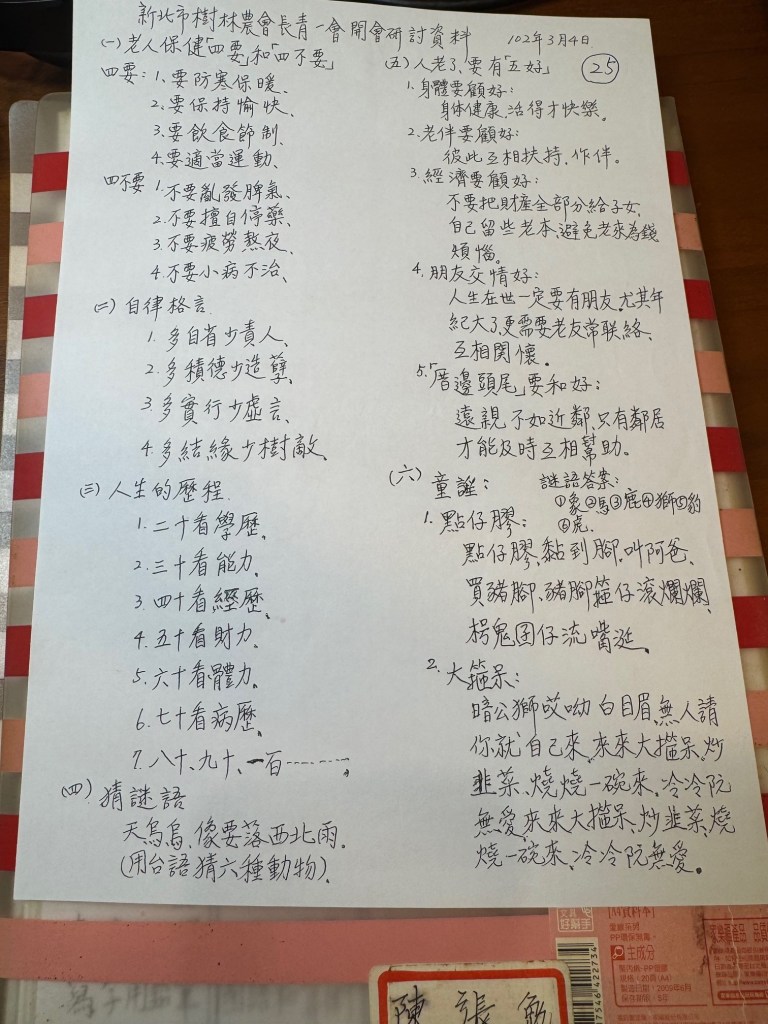 新北市樹林農會長青一會開會研討資料　102年3月4日
(一)老人保健「四要」和「四不要」
四要：1.要防寒保暖、
2.要保持愉快、
3.要飲食節制、
4.要適當運動、
四不要 1.不要亂發脾氣、
2.不要擅自停藥、
3.不要疲勞熬夜、
4.不要小病不治、
(二)自律格言
1.多自省少責人、
2.多積德少造孽、
3.多實行少虛言、
4.多結緣少樹敵、
(三)人生的歷程
1.二十看學歷、
2.三十看能力、
3.四十看經歷、
4.五十看財力、
5.六十看體力、
6.七十看病歷、
7.八十、九十、一百………、
(四)猜謎語
天烏烏、像要落西北雨。
(用台語猜六種動物)。
(五)人老了、要有「五好」　25
1.身體要顧好：
身体健康、活得才快樂。
2.老伴要顧好：
彼此互相扶持、作伴。
3.經濟要顧好：
不要把財產全部分給子女、
自己留些老本、避免老來為錢
煩惱。
4.朋友交情好：
人生在世一定要有朋友、尤其年
紀大了、更需要老友常联絡、
互相関懷。
5.「厝邊頭尾」要和好：
遠親不如近鄰、只有鄰居
才能及時互相幫助。
(六)童謠：　謎語答案：
①象②馬③鹿④獅⑤豹
⑥虎、
1.點仔膠：
點仔膠、黏到腳、叫阿爸、
買豬腳、豬腳箍仔滾爛爛、
枵鬼囝仔流嘴涎、
2.大箍呆：
暗公獅哎呦白目眉、無人請
你就自己來、來來大箍呆、炒
韭菜、燒燒一碗來、冷冷阮
無愛、來來大箍呆、炒韭菜、燒
燒一碗來、冷冷阮無愛。
主成分
製造日期：
保存期限：5年
陳張